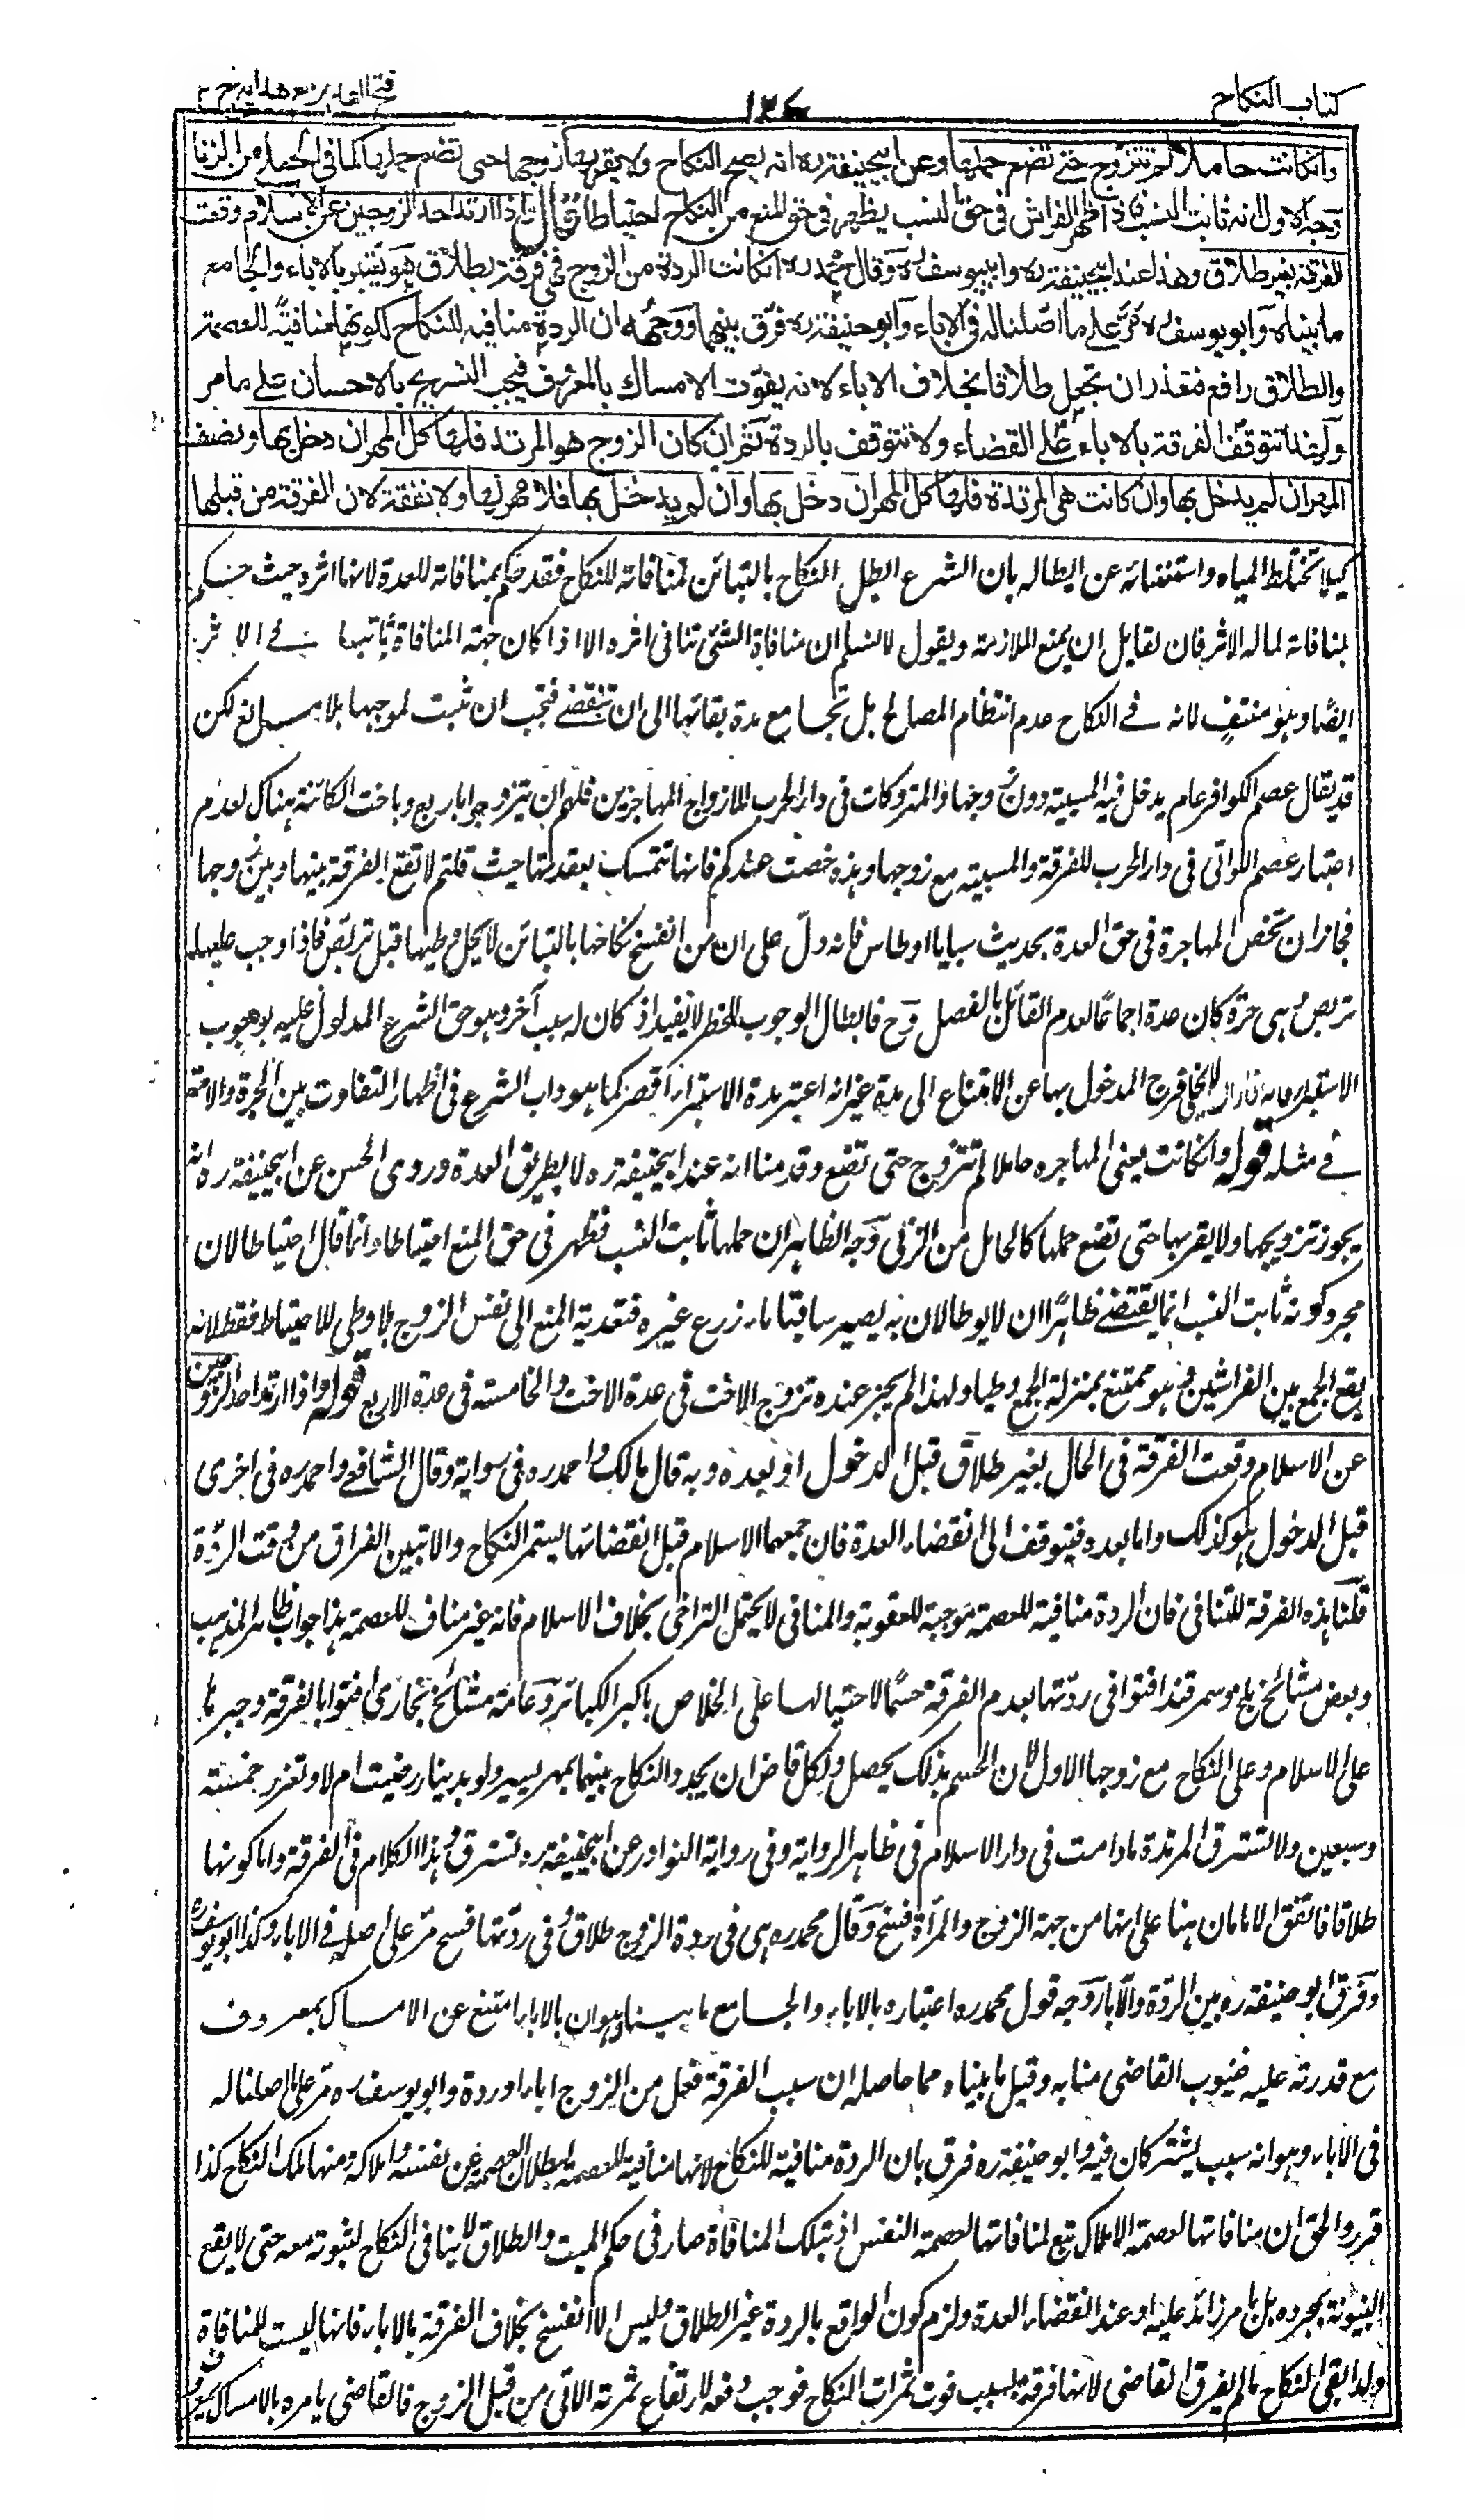 كتاب النكاح
١٢٤
فتح القدير مع هدايه ج ٢
وان كانت حاملا لم تتزوج حتى تضع حملها وعن ابيحنيفة ره انه يصح النكاح ولا يقربها زوجها حتى تضع حملها كما في الحبلى من الزنا
وجه الاول انه ثابت النسب فاذا ظهر الفراش في حق النسب يظهر في حق المنع من النكاح احتياطا قال واذا ارتد احد الزوجين عن الاسلام وقعت
الفرقة بغير طلاق وهذا عند ابيحنيفة ره وابيوسف ره وقال محمد ره ان كانت الردة من الزوج فهي فرقة بطلاق هو يعتبر بالاباء والجامع
ما بيناه وابو يوسف ره مر على ما اصلنا له في الاباء وابو حنيفة ره فرق بينهما ووجهه ان الردة منافية للنكاح لكونها منافية للعصمة
والطلاق رافع فتعذر ان تجعل طلاقا بخلاف الاباء لانه يفوت الامساك بالمعروف فيجب التسريح بالاحسان على ما مر
ولهذا تتوقف الفرقة بالاباء على القضاء ولا تتوقف بالردة ثم ان كان الزوج هو المرتد فلها كل المهر ان دخل بها ونصف
المهر ان لم يدخل بها وان كانت هي المرتدة فلها كل المهر ان دخل بها وان لم يدخل بها فلا مهر لها ولا نفقة لان الفرقة من قبلها
كيلا تختلط المياه واستغنائه عن ابطاله بان الشرع ابطل النكاح بالتباين لمنافاته للنكاح فقد حكم بمنافاته للعدة لانها اثره حيث حكم
بمنافاته لما له الاثر فان لقايل ان يمنع الملازمة ويقول لا نسلم ان منافاة الشئ تنافى اثره الا اذا كان جهة المنافاة ثابتها فے الاثر
ايضًا وهو منتفٍ لانه فے النكاح عدم انتظام المصالح بل تجامع مدة بقائها الى ان تنقضے فتجب ان تثبت لموجبها بلا مانع لكن
قد يقال عصم الكوافر عام يدخل فيه المسبية دون زوجها والمتروكات فى دار الحرب للازواج المهاجرين فلهم ان يتزوجوا باربع وباخت الكائنة هناك لعدم
اعتبار عصم اللواتى فى دار الحرب للفرقة والمسبية مع زوجها وهذه خصت عندكم فانها تتمسك بعقدتها حيث قلتم لا تقع الفرقة بينها وبين زوجها
فجاز ان تخص المهاجرة فى حق العدة بحديث سبايا اوطاس فانه دل على ان من انفسخ نكاحها بالتباين لا يحل وطيها قبل تربص فاذا وجب عليها
تربص وهى حرة كان عدة اجماعًا لعدم القائل بالفصل وح فابطال الوجوب للخطر لا يفيد اذ كان له سبب آخر وهو حق الشرع المدلول عليه بوجوب
الاستبراء فانه لا يخلى فرج المدخول بها عن الامتناع الى مدة غير انه اعتبر مدة الاستبراء اقصر كما هو داب الشرع فى اظهار التفاوت بين الحرة والامة
فے مثله قوله وان كانت يعنى المهاجرة حاملا لم تتزوج حتى تضع وقدمنا انه عند ابيحنيفة ره لا بطريق العدة وروى الحسن عن ابيحنيفة ره انه
يجوز تزويجها ولا يقربها حتى تضع حملها كالحامل من الزنى وجه الظاهر ان حملها ثابت النسب فظهر فى حق المنع احتياطا وانما قال احتياطا لان
مجرد كونه ثابت النسب انما يقتضے ظاهرًا ان لا يوطا لان به يصير ساقيا ماءه زرع غيره فتعدية المنع الى نفس الزوج بلا وطى للاحتياط فقط لانه
يقع الجمع بين الفراشين وهو ممتنع بمنزلة الجمع وطيا ولهذا لم يجز عنده تزوج الاخت فى عدة الاخت والخامسة فى عدة الاربع قوله واذا ارتد احد الزوجين
عن الاسلام وقعت الفرقة فى الحال بغير طلاق قبل الدخول او بعده وبه قال مالك واحمد ره فى رواية وقال الشافعے واحمد ره فى اخرى
قبل الدخول هو كذلك واما بعده فيتوقف الى انقضاء العدة فان جمعهما الاسلام قبل انقضائها يستمر النكاح والا تبين الفراق من وقت الردة
قلنا هذه الفرقة للتنافى فان الردة منافية للعصمة موجبة للعقوبة والمنافى لا يحتمل التراخى بخلاف الاسلام فانه غير مناف للعصمة هذا جواب ظاهر المذهب
وبعض مشائخ بلخ وسمرقند افتوا فى ردتها بعدم الفرقة حسمًا لاحتيالها على الخلاص باكبر الكبائر وعامة مشائخ بخارى افتوا بالفرقة وجبرها
على الاسلام وعلى النكاح مع زوجها الاول لان الحسم بذلك يحصل ولكل قاض ان يجدد النكاح بينهما بمهر يسير ولو بدينار رضيت ام لا وتعزر خمسة
وسبعين ولا تسترق المرتدة ما دامت فى دار الاسلام فى ظاهر الرواية وفى رواية النوادر عن ابيحنيفة ره تسترق وهذا الكلام فى الفرقة واما كونها
طلاقا فاتفق الامامان هنا على انها من جهة الزوج والمرأة فسخ وقال محمد ره هى فى ردة الزوج طلاق وفى ردتها فسخ مر على اصله فے الاباء وكذا ابو يوسف ره
وفرق ابو حنيفة ره بين الردة والاباء وجه قول محمد ره اعتباره بالاباء والجامع ما بيناه وهو ان بالاباء امتنع عن الامساك بمعروف
مع قدرته عليه فينوب القاضى منابه وقيل ما بيناه مما حاصله ان سبب الفرقة فعل من الزوج اباء او ردة وابو يوسف ره مر على ما اصلنا له
فى الاباء وهو انه سبب يشتركان فيه وابو حنيفة ره فرق بان الردة منافية للنكاح لانها منافية للعصمة لبطلان العصمة عن نفسه واملاكه ومنها ملك النكاح كذا
قرر والحق ان منافاتها لعصمة الاملاك تبع لمنافاتها لعصمة النفس اذ بتلك المنافاة صار فى حكم الميت والطلاق لا ينافى النكاح لثبوته معه حتى لا يقع
البينونة بمجرده بل بامر زائد عليه او عند انقضاء العدة ولزم كون الواقع بالردة غير الطلاق وليس الا الفسخ بخلاف الفرقة بالاباء فانها ليست للمنافاة
ولهذا بقى النكاح ما لم يفرق القاضى لانها فرقة بسبب فوت ثمرات النكاح فوجب رفعه لارتفاع ثمرته الاتى من قبل الزوج فالقاضى يامره بالامساك بمعروف